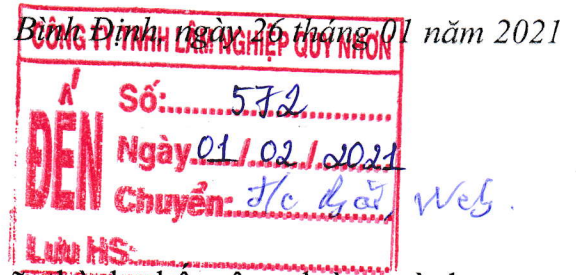 Bình Định, ngày 26 tháng 01 năm 2021
CÔNG TY TNHH LÂM NGHIỆP QUY NHƠN
ĐẾN
Số: 572
Ngày 01/02/2021
Chuyển: Đ/c Web.
Lưu HS: